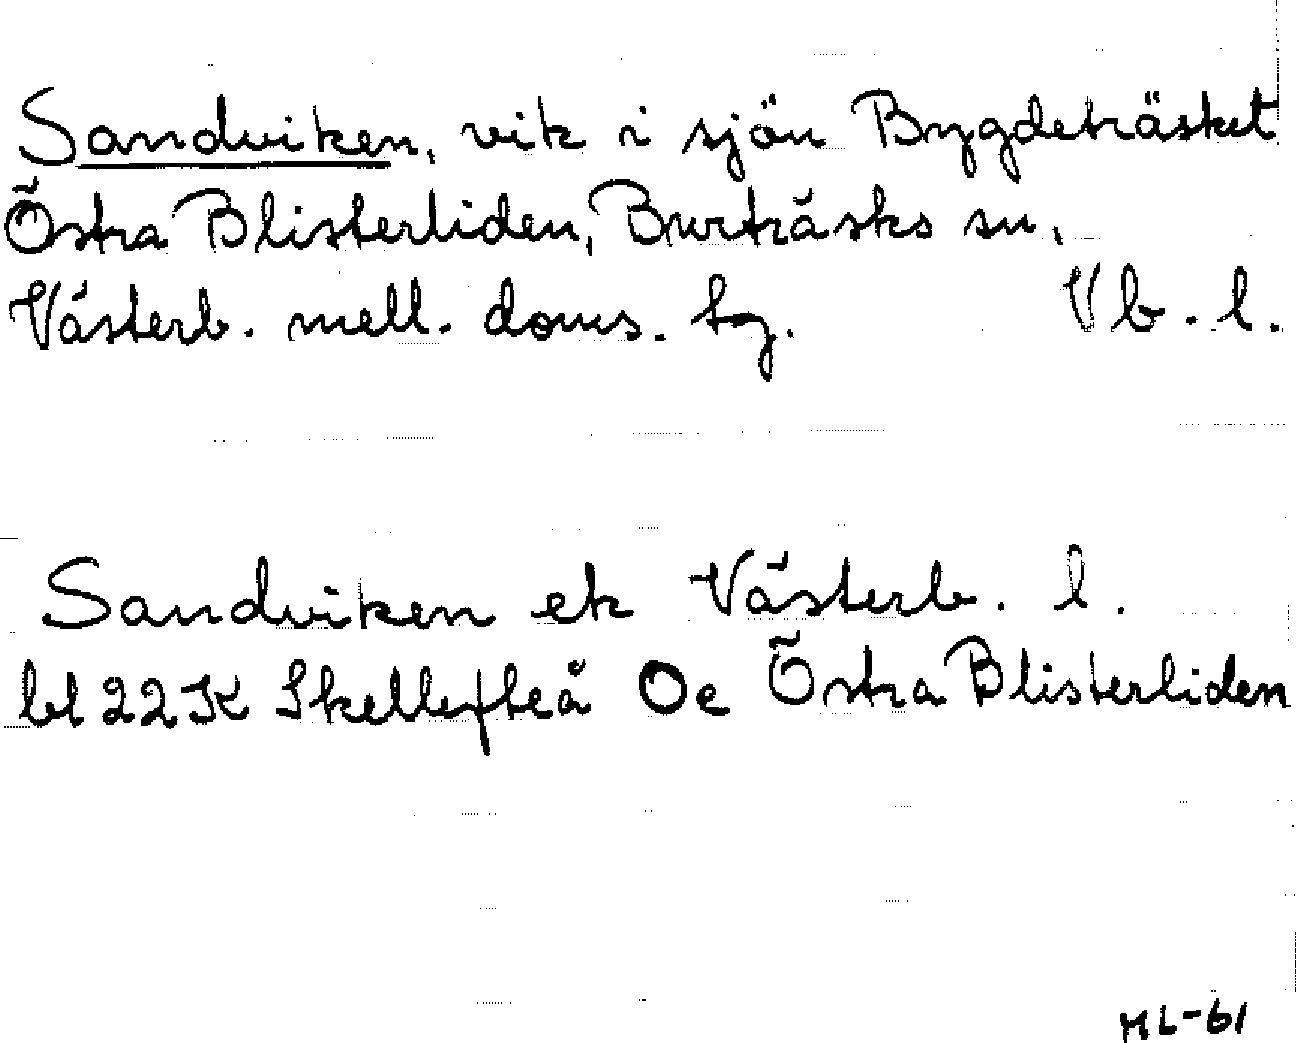 Sandviken, vik i sjön Bygdeträsket
Östra Blisterliden, Burträsks sn,
Västerb. mell. doms. tg. Vb. l.
Sandviken ek Västerb. l.
bl 22K Skellefteå Oe Östra Blisterliden
ML-61